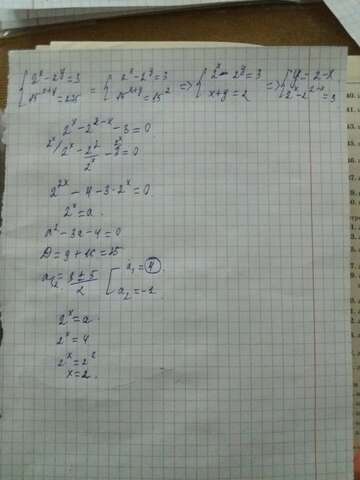 { 2^x - 2^y = 3 = { 2^x - 2^y = 3 => { 2^x - 2^y = 3 => { y = 2 - x
{ 15^(x+y) = 225 { 15^(x+y) = 15^2 { x + y = 2 { 2^x - 2^(2-x) = 3
2^x - 2^(2-x) - 3 = 0
2^x / 2^x - 2^2/2^x - 3 = 0
2^(2x) - 4 - 3·2^x = 0
2^x = a.
a^2 - 3a - 4 = 0
D = 9 + 16 = 25
a_1,2 = (3 ± 5)/2 [ a_1 = 4
a_2 = -1
2^x = a
2^x = 4
2^x = 2^2
x = 2.